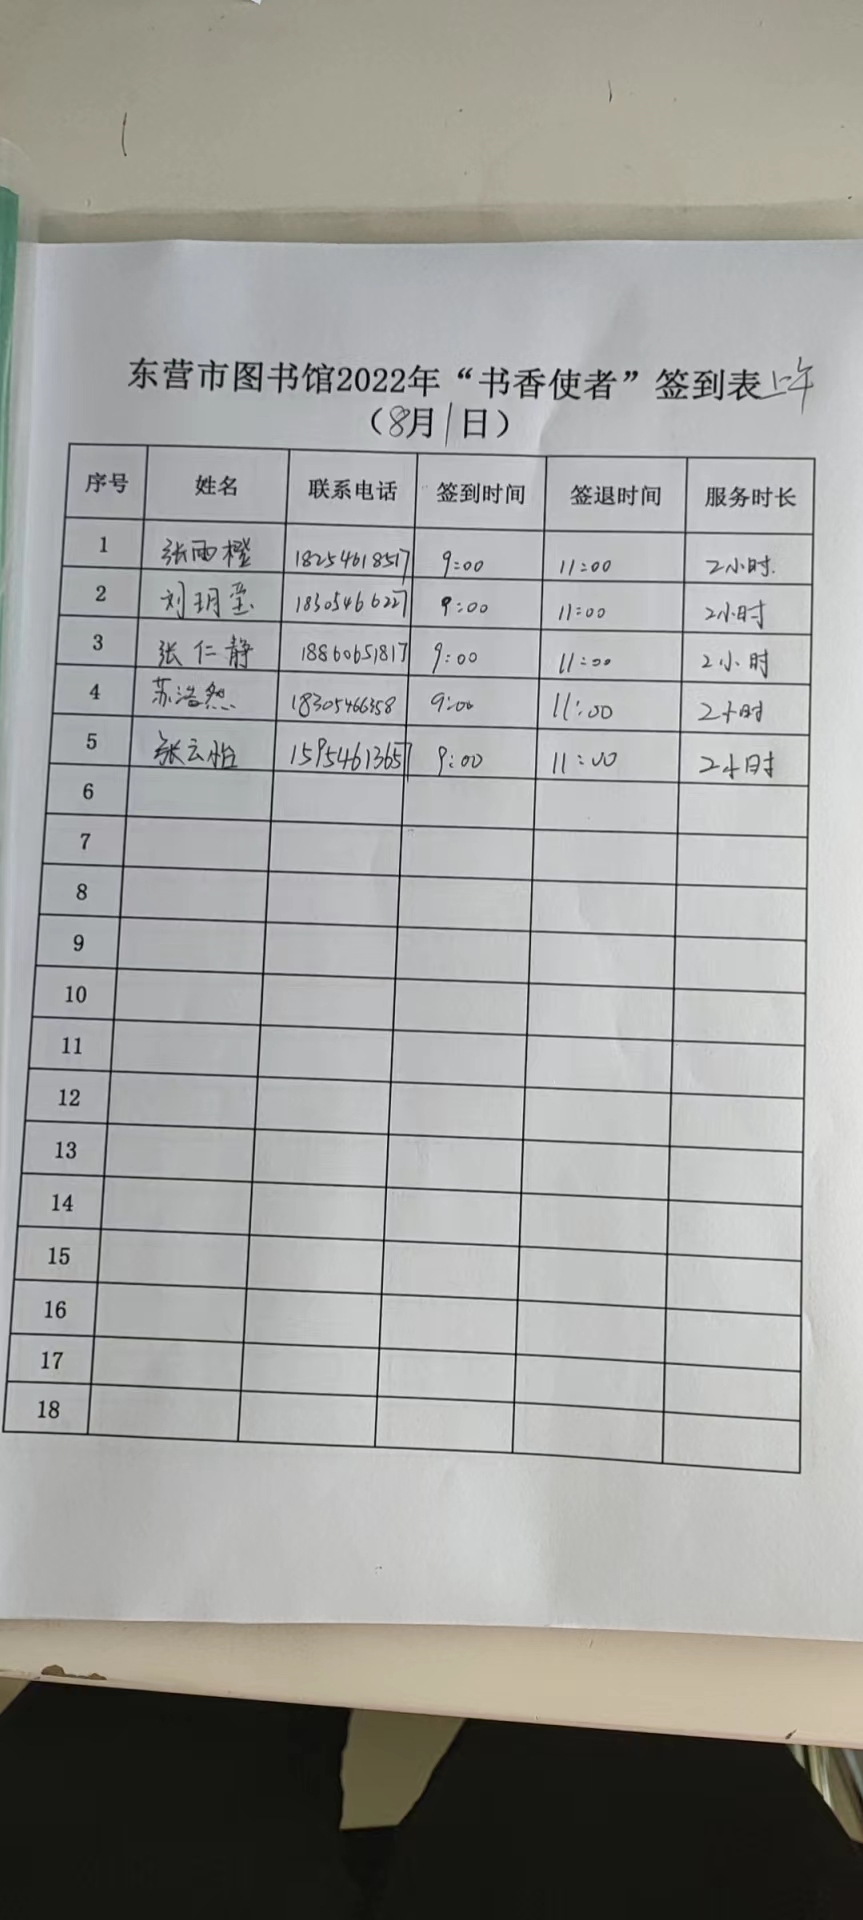 东营市图书馆2022年“书香使者”签到表上午
（8月1日）
序号 姓名 联系电话 签到时间 签退时间 服务时长
1 张雨橙 18254618517 9:00 11:00 2小时.
2 刘玥莹 18305466227 9:00 11:00 2小时
3 张仁静 18860651817 9:00 11:00 2小时
4 苏浩然 18305466358 9:00 11:00 2小时
5 张云怡 15954613657 9:00 11:00 2小时
6
7
8
9
10
11
12
13
14
15
16
17
18